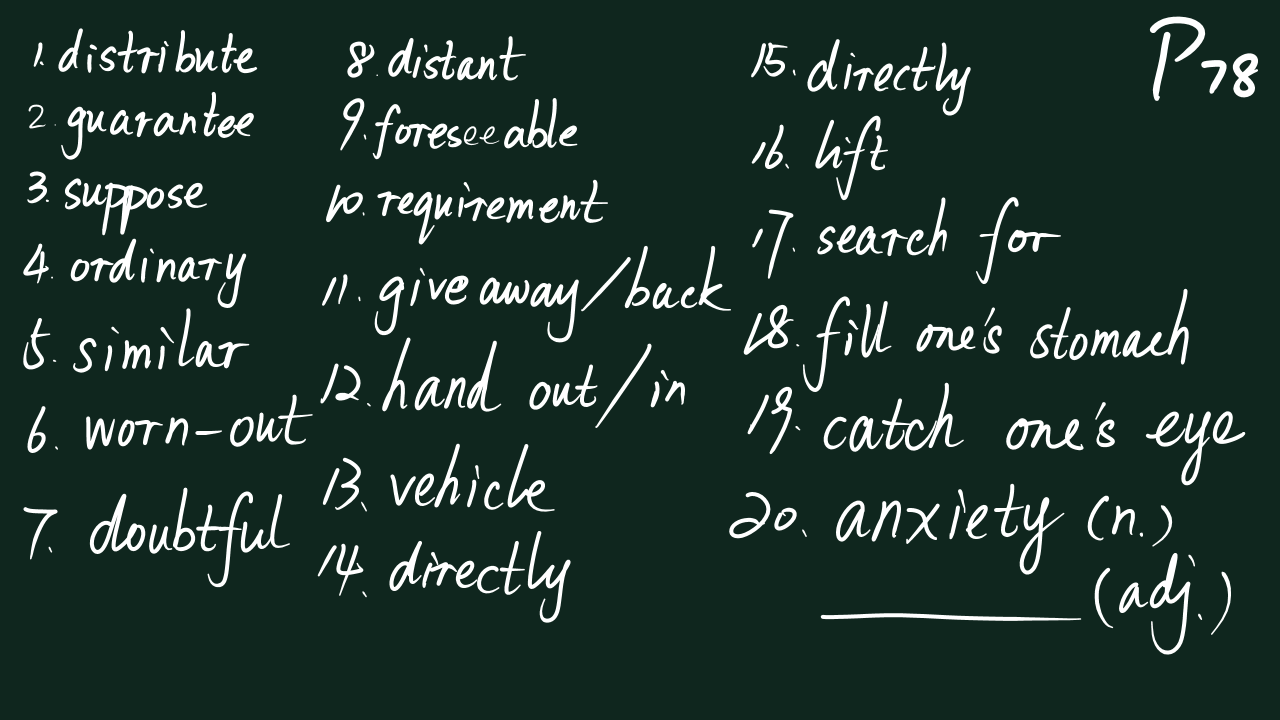 1. distribute
2. guarantee
3. suppose
4. ordinary
5. similar
6. worn-out
7. doubtful
8. distant
9. foreseeable
10. requirement
11. give away/back
12. hand out/in
13. vehicle
14. directly
15. directly
16. lift
17. search for
18. fill one's stomach
19. catch one's eye
20. anxiety (n.)
__________ (adj.)
P78